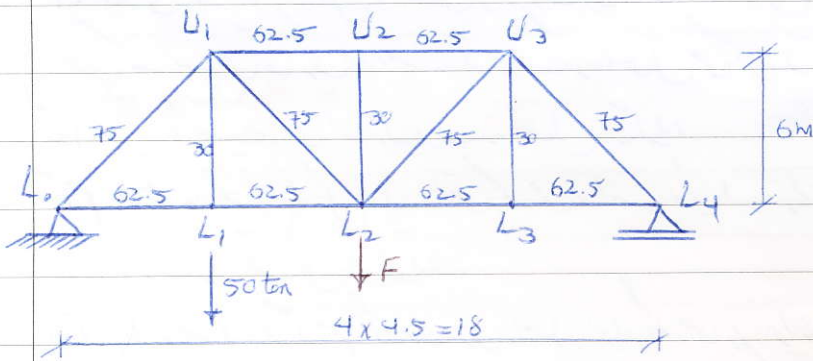 U1 62.5 U2 62.5 U3
75 30 75 30 75 30 75 6m
L0 62.5 62.5 62.5 62.5 L4
L1 L2 L3
50 ton F
4 x 4.5 = 18